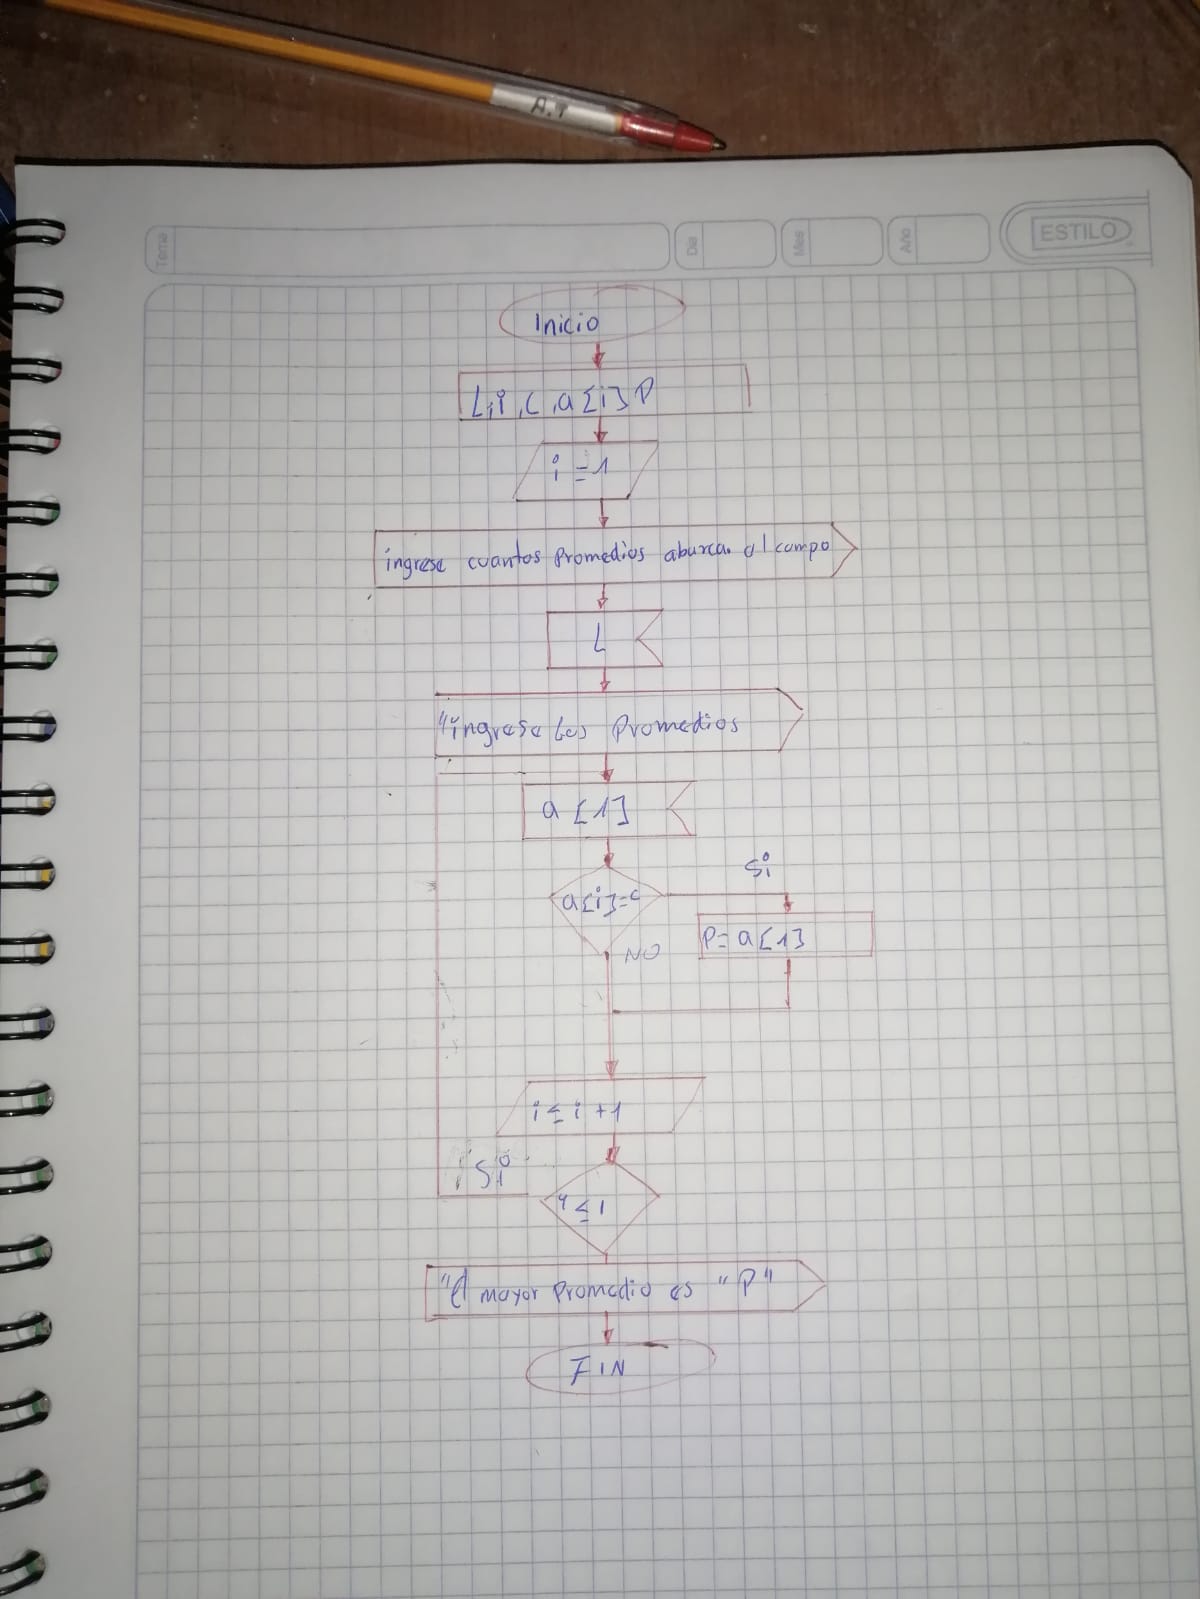 A.T
ESTILO
Tema
Dia
Mes
Año
Inicio
L, i, c, a[i] P
i = 1
ingrese cuantos promedios aburca el campo
L
"ingrese los promedios
a [1]
Si
a[i]=c
P= a[1]
NO
i ≤ i +1
Si
4 ≤ 1
"El mayor promedio es "P"
FIN